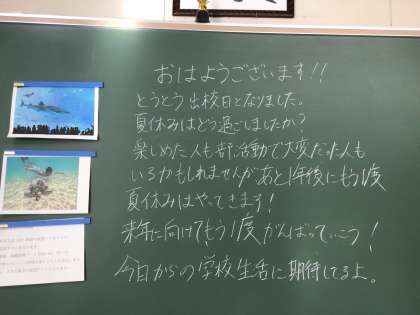 おはようございます!!
とうとう出校日となりました。
夏休みはどう過ごしましたか?
楽しめた人も部活動で大変だった人も
いるかもしれませんが あと1年後にもう1度
夏休みはやってきます!
来年に向けてもう1度がんばっていこう!
今日からの学校生活に期待してるよ。